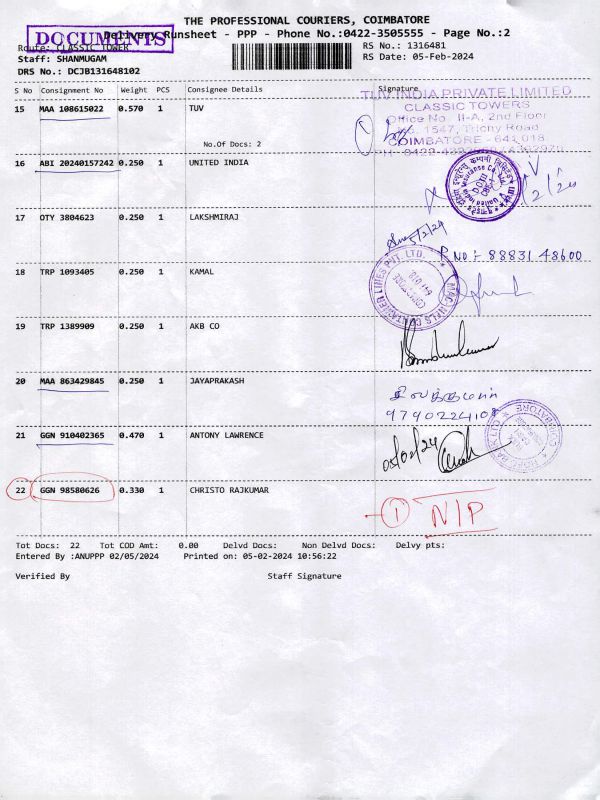 THE PROFESSIONAL COURIERS, COIMBATORE
DOCUMENTS
Delivery Runsheet - PPP - Phone No.:0422-3505555 - Page No.:2
Route: CLASSIC TOWER
RS No.: 1316481
Staff: SHANMUGAM
RS Date: 05-Feb-2024
DRS No.: DCJB131648102
S No Consignment No Weight PCS Consignee Details Signature
TUV INDIA PRIVATE LIMITED
CLASSIC TOWERS
15 MAA 108615022 0.570 1 TUV
Office No. II-A, 2nd Floor
1547, Trichy Road
COIMBATORE - 641 018
No.Of Docs: 2
16 ABI 20240157242 0.250 1 UNITED INDIA
17 OTY 3804623 0.250 1 LAKSHMIRAJ
5/2/24
P NO :- 88831 48600
18 TRP 1093405 0.250 1 KAMAL
19 TRP 1389909 0.250 1 AKB CO
20 MAA 863429845 0.250 1 JAYAPRAKASH
9790224108
21 GGN 910402365 0.470 1 ANTONY LAWRENCE
05/02/24
22 GGN 98580626 0.330 1 CHRISTO RAJKUMAR
1 N/P
Tot Docs: 22 Tot COD Amt: 0.00 Delvd Docs: Non Delvd Docs: Delvy pts:
Entered By :ANUPPP 02/05/2024 Printed on: 05-02-2024 10:56:22
Verified By Staff Signature